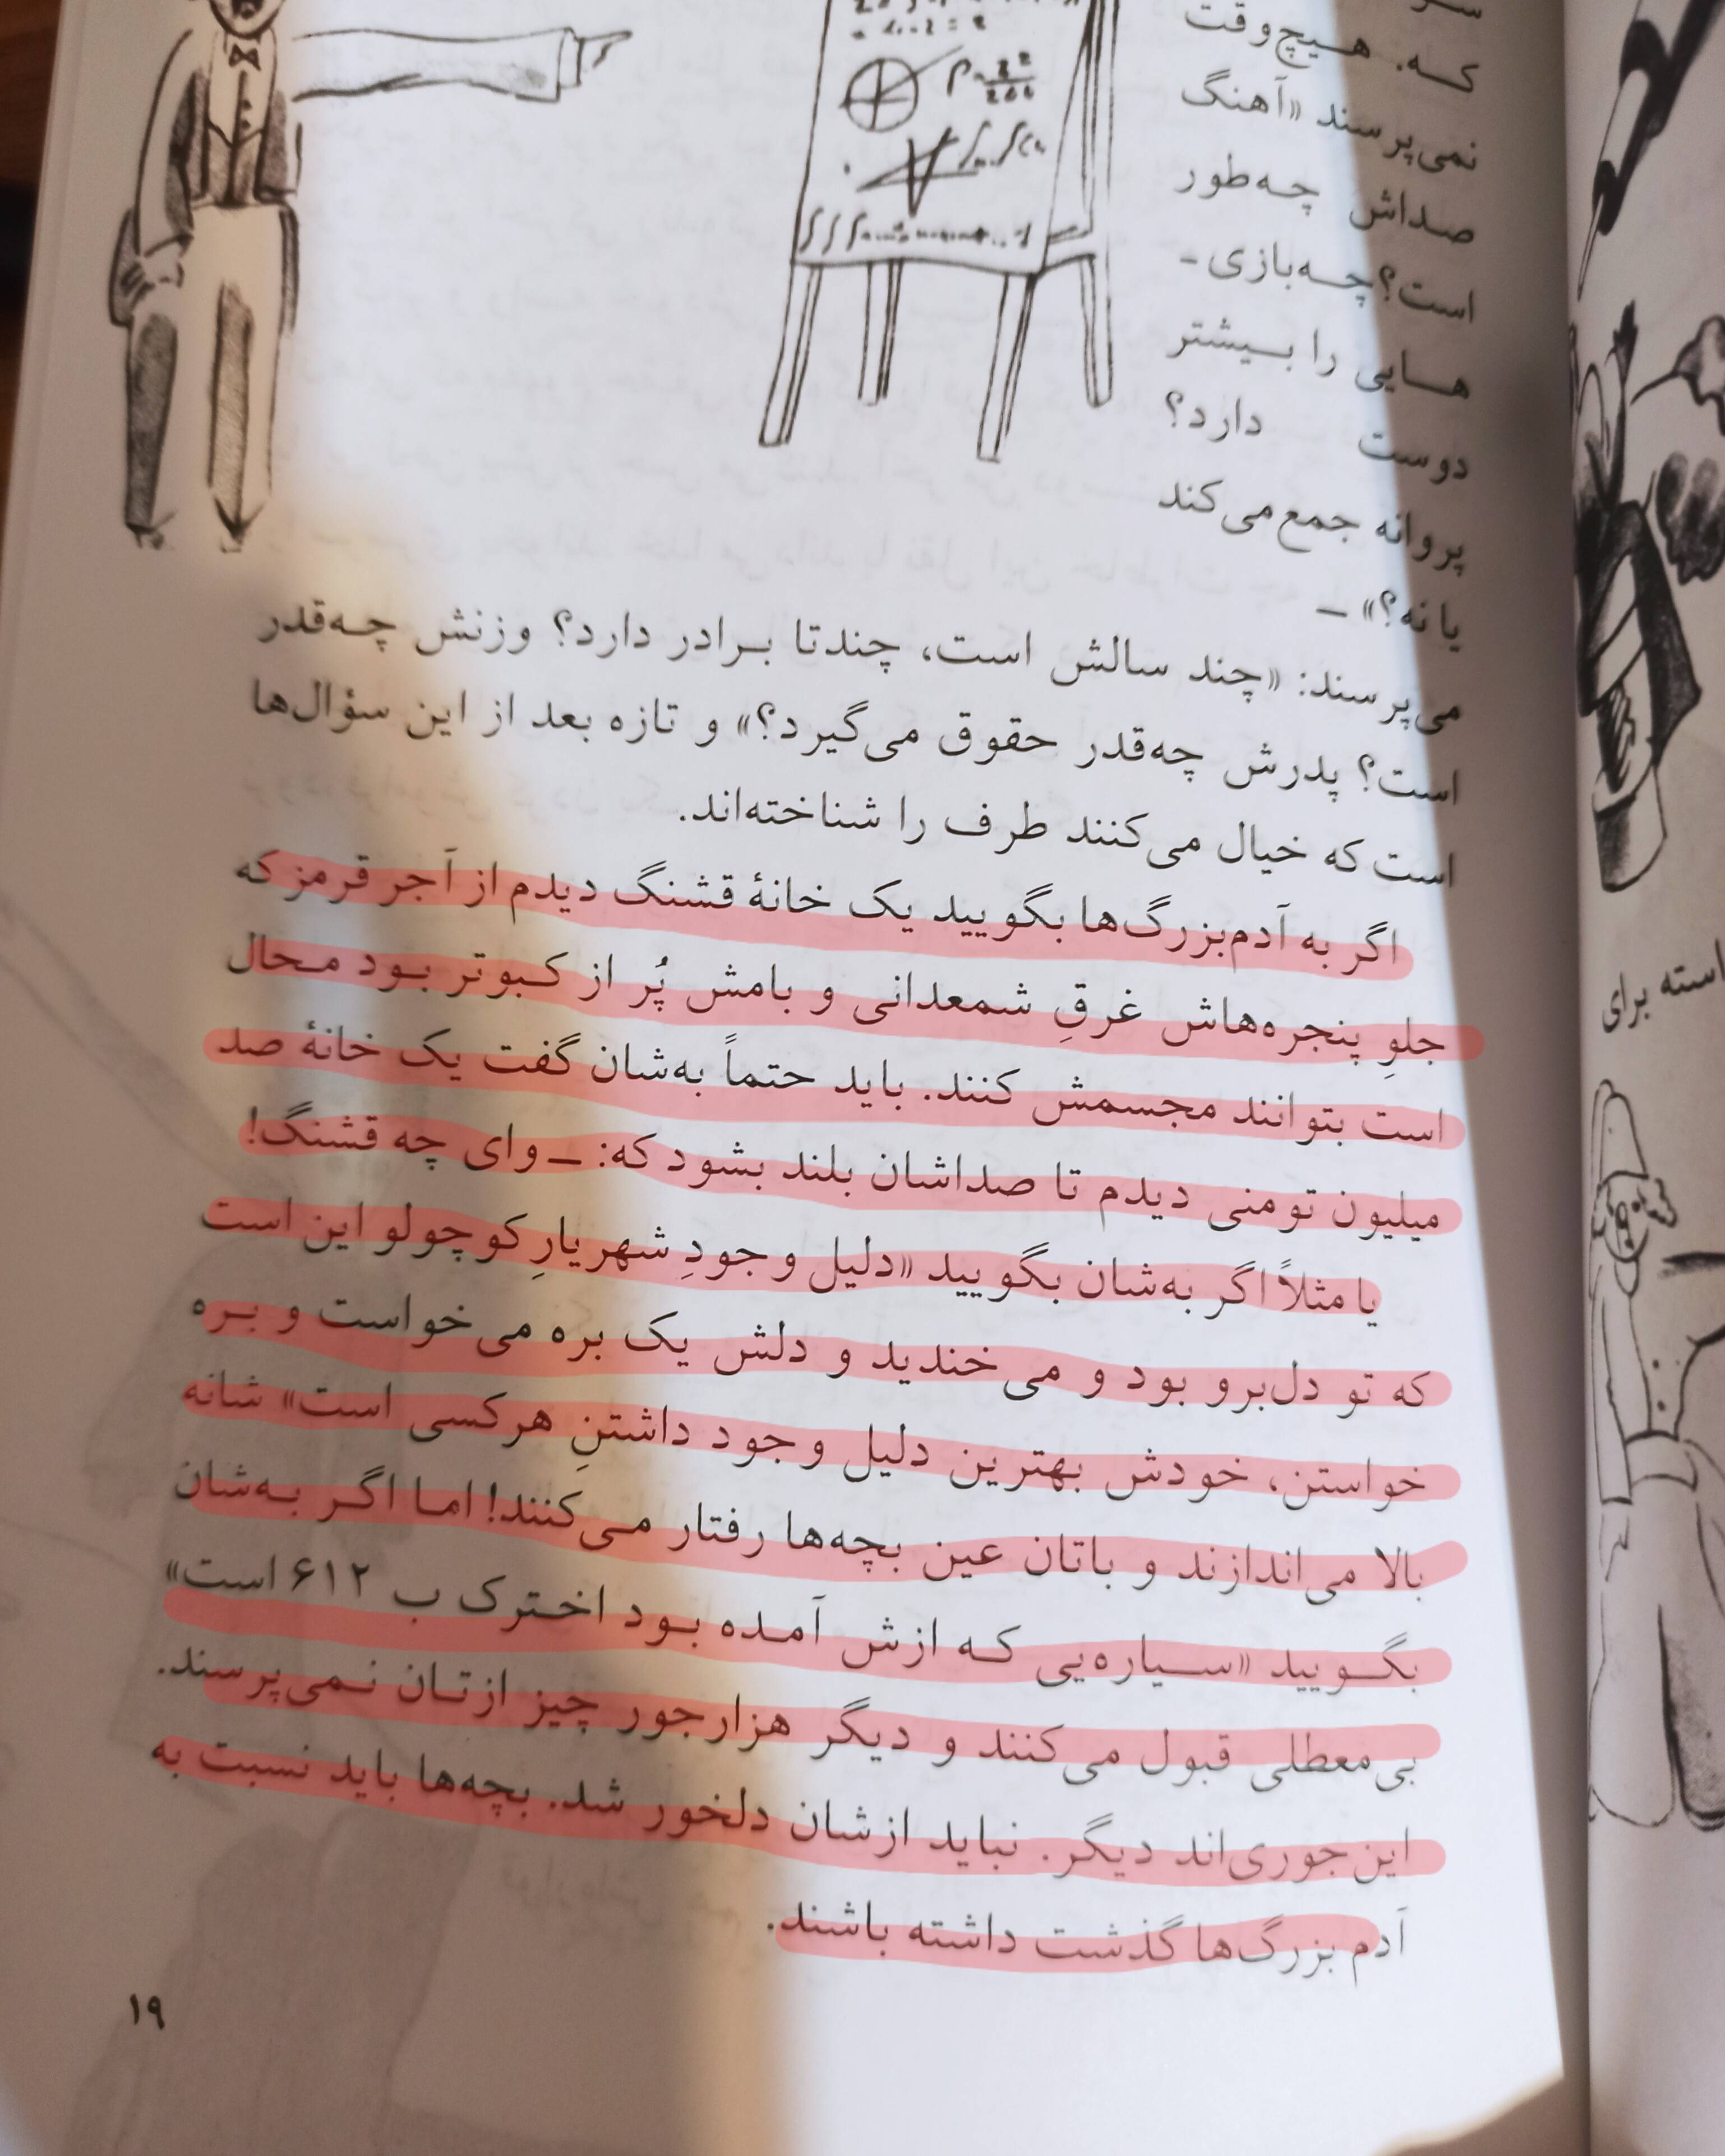 که. هیچ‌وقت
نمی‌پرسند «آهنگ
صداش چه‌طور
است؟ چه‌بازی-
هایی را بیشتر
دوست دارد؟
پروانه جمع می‌کند
یا نه؟» —
می‌پرسند: «چند سالش است، چندتا برادر دارد؟ وزنش چه‌قدر
است؟ پدرش چه‌قدر حقوق می‌گیرد؟» و تازه بعد از این سؤال‌ها
است که خیال می‌کنند طرف را شناخته‌اند.
اگر به آدم‌بزرگ‌ها بگویید یک خانهٔ قشنگ دیدم از آجر قرمز که
جلوِ پنجره‌هاش غرقِ شمعدانی و بامش پُر از کبوتر بود محال
است بتوانند مجسمش کنند. باید حتماً به‌شان گفت یک خانهٔ صد
میلیون تومنی دیدم تا صداشان بلند بشود که: — وای چه قشنگ!
یا مثلاً اگر به‌شان بگویید «دلیل وجودِ شهریارِ کوچولو این است
که تو دل‌برو بود و می‌خندید و دلش یک بره می‌خواست و بره
خواستن، خودش بهترین دلیل وجود داشتنِ هرکسی است» شانه
بالا می‌اندازند و باتان عین بچه‌ها رفتار می‌کنند! اما اگر به‌شان
بگویید «سیاره‌یی که ازش آمده بود اخترک ب ۶۱۲ است»
بی‌معطلی قبول می‌کنند و دیگر هزارجور چیز ازتان نمی‌پرسند.
این‌جوری‌اند دیگر. نباید ازشان دلخور شد. بچه‌ها باید نسبت به
آدم بزرگ‌ها گذشت داشته باشند.
۱۹
برای